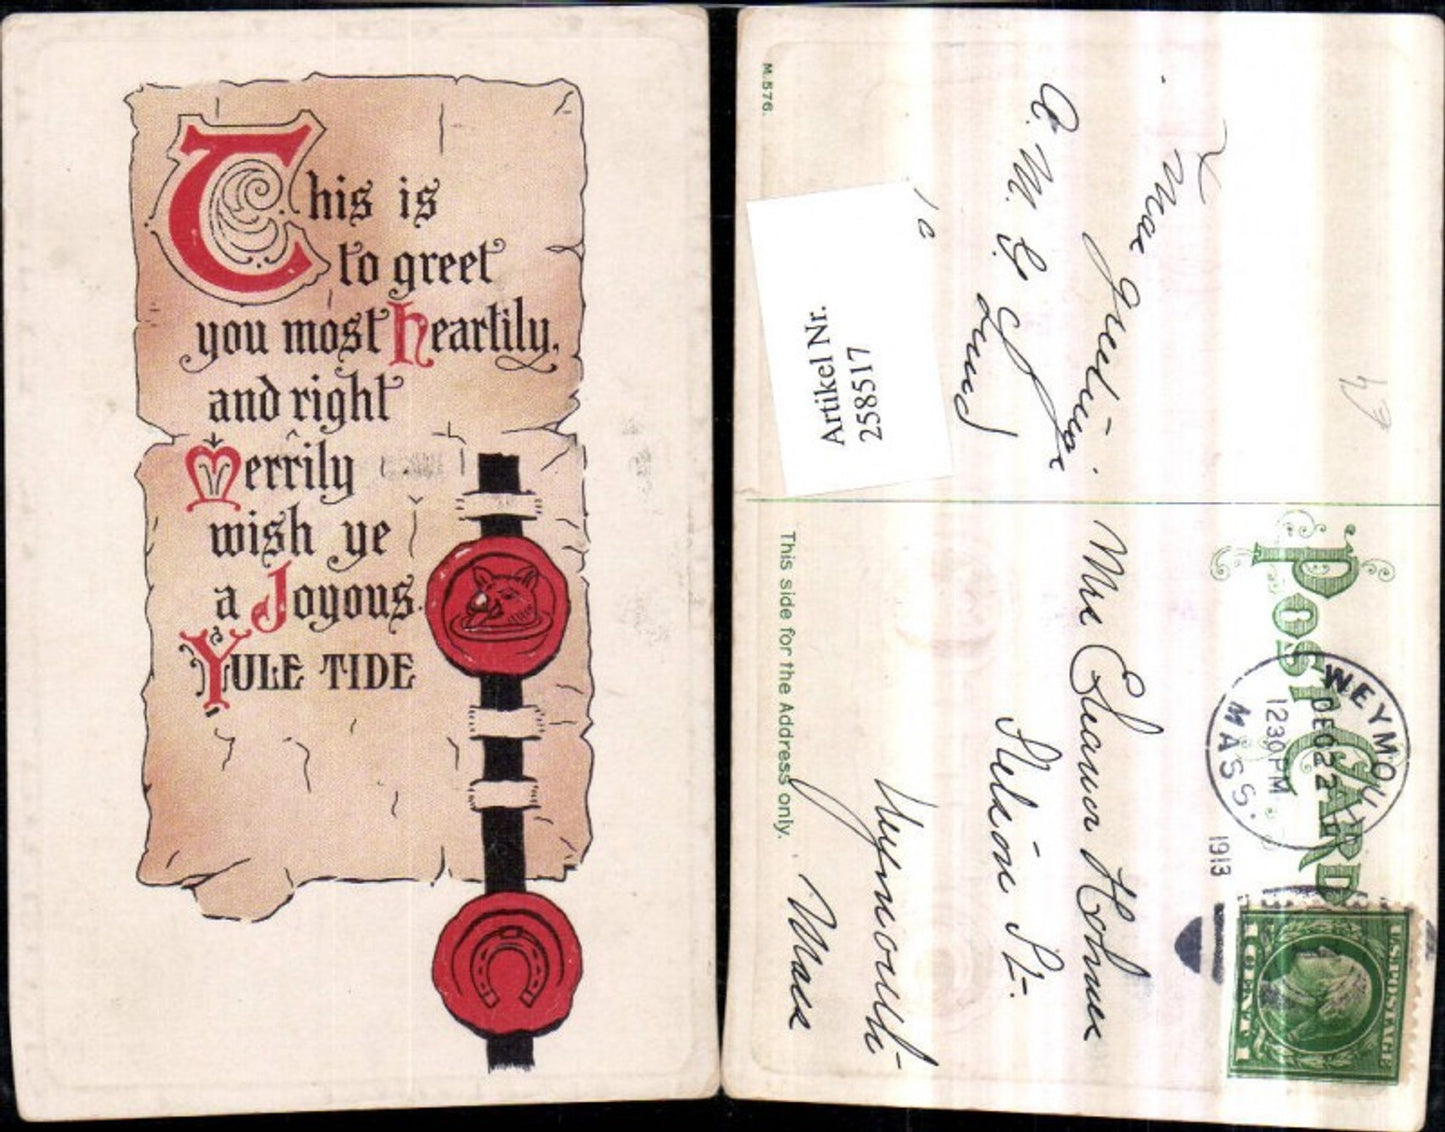 This is
to greet
you most heartily,
and right
Merrily
wish ye
a Joyous
YULE TIDE
M.576.
Artikel Nr.
258517
A. M. G.
Post Card
This side for the Address only.
WEYMOU
DEC 22
1230 PM
MASS.
1913
U.S. POSTAGE
1 CENT 1
Holmes
St.
Weymouth
Mass